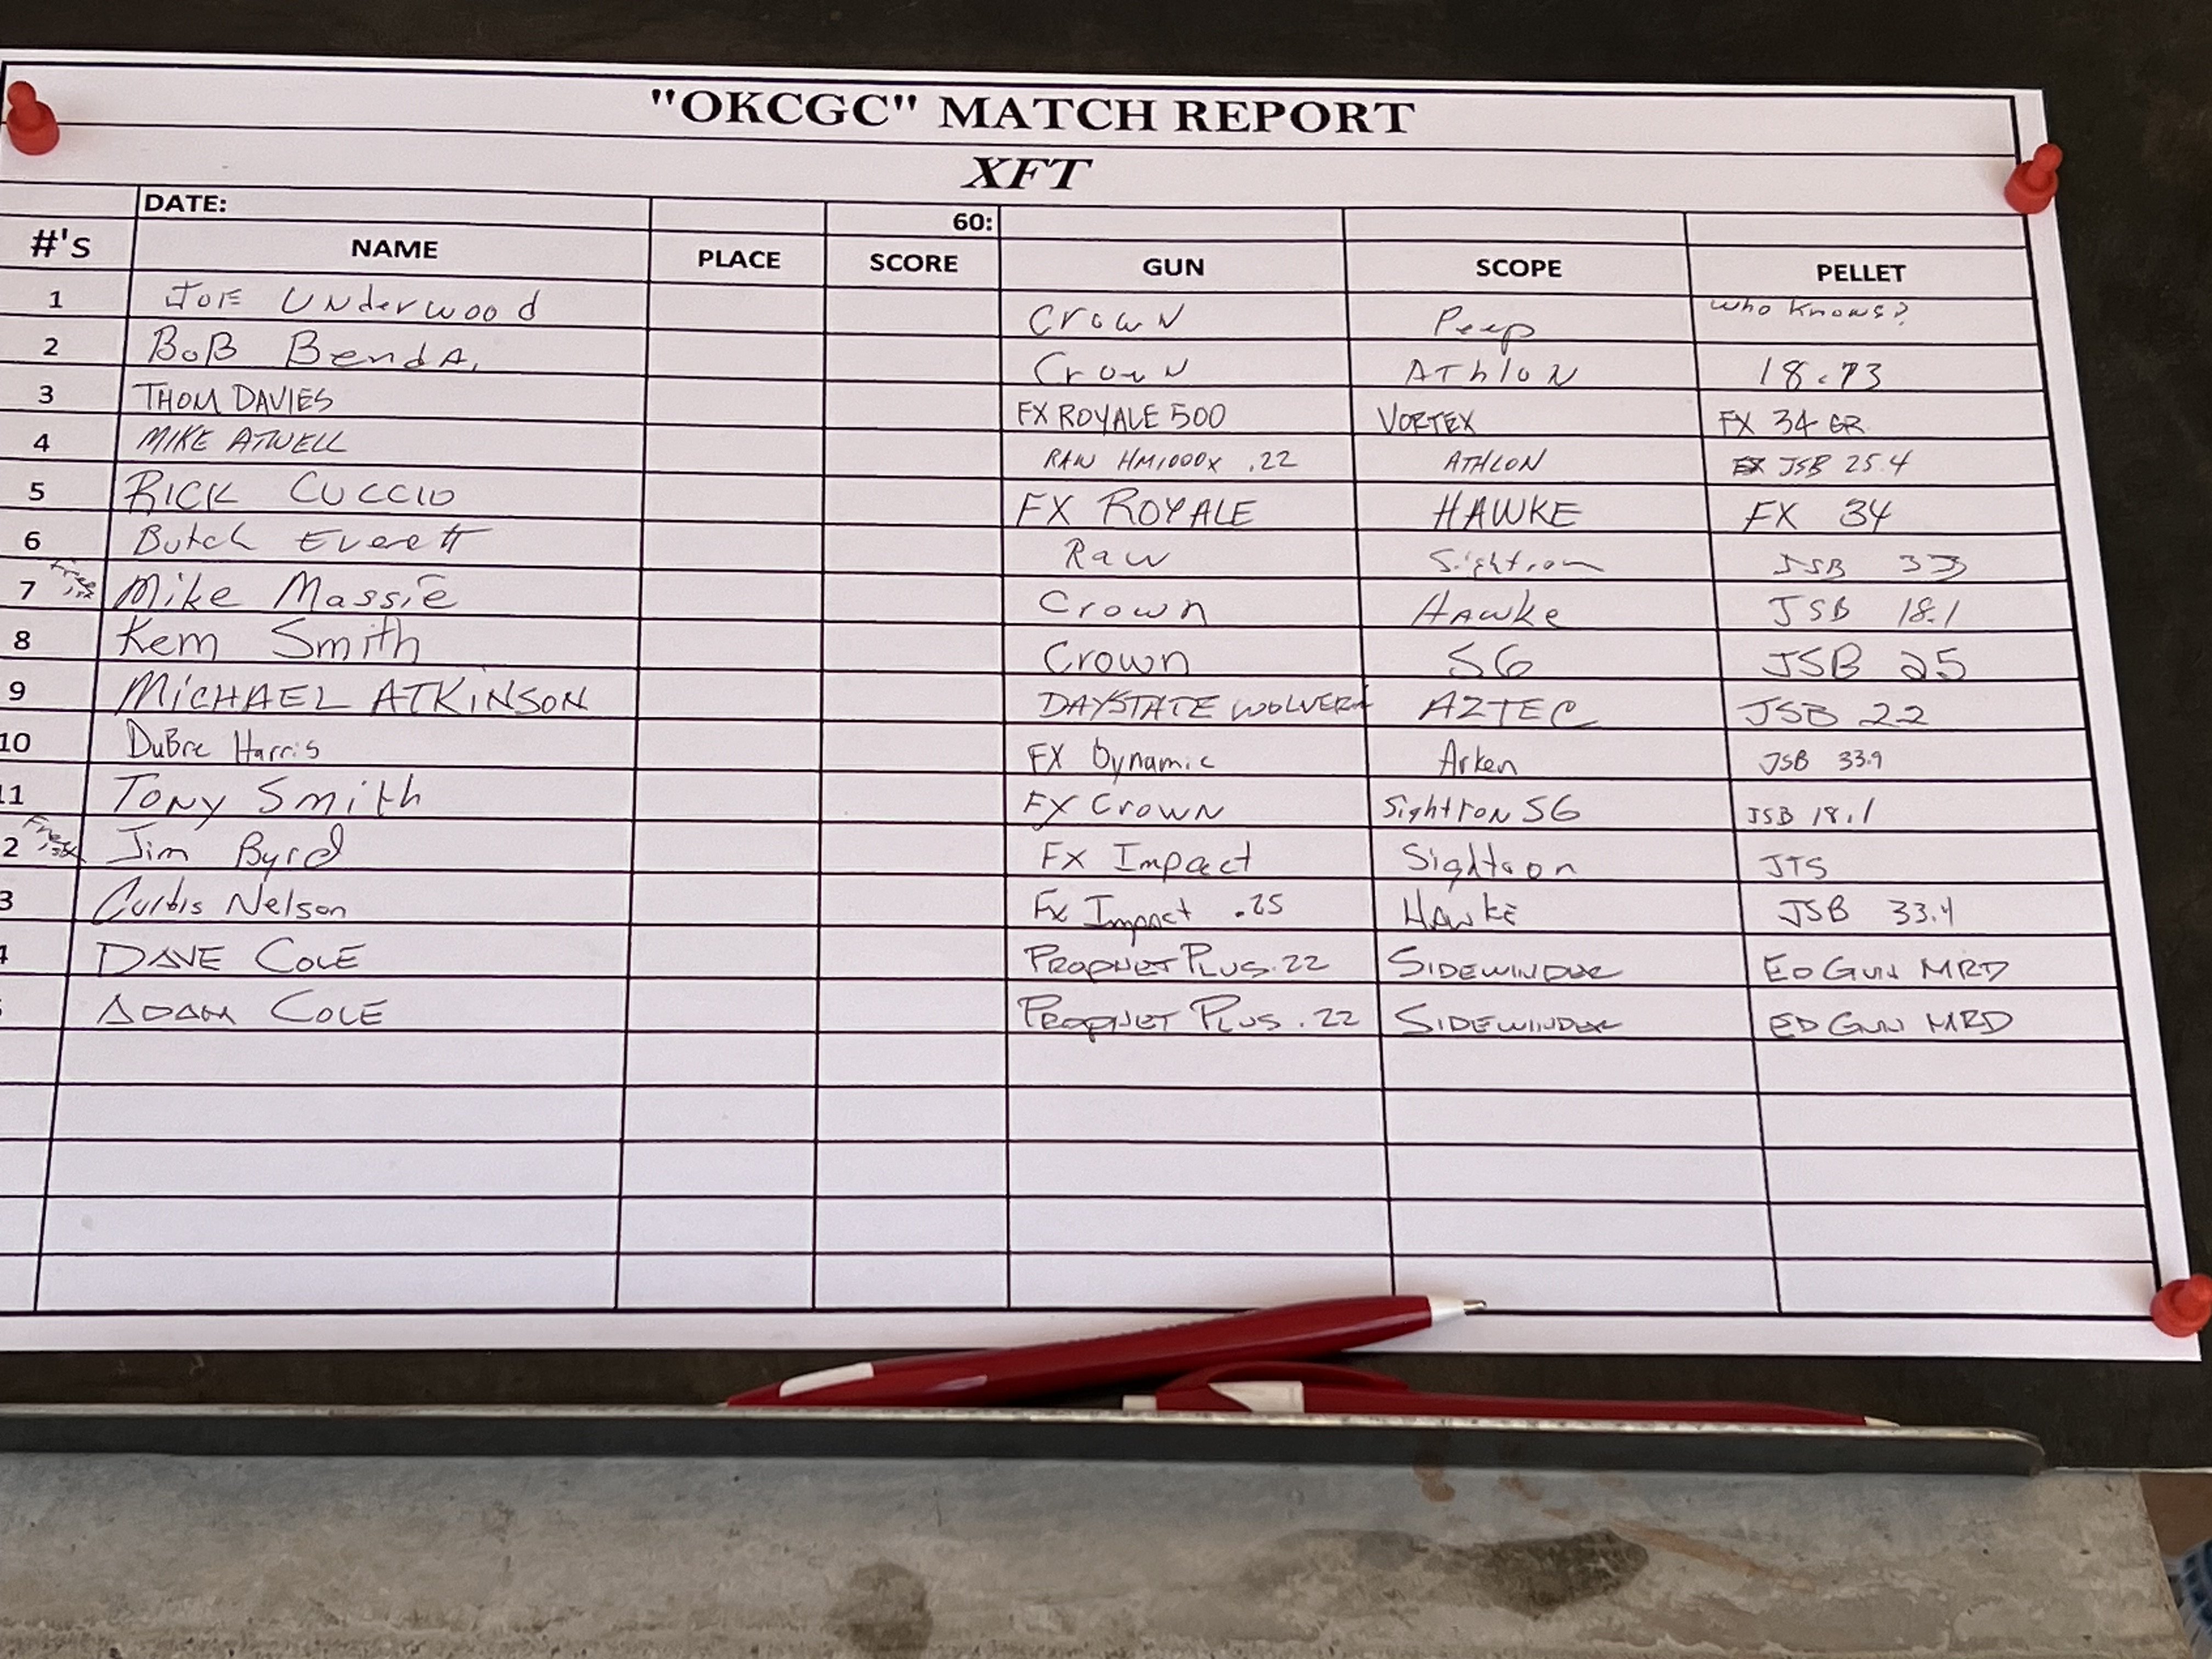 "OKCGC" MATCH REPORT
XFT
DATE: 60:
#'s NAME PLACE SCORE GUN SCOPE PELLET
1 JOE UNderwood CrowN Peep who knows?
2 BoB BendA. CrowN AThloN 18.73
3 THOM DAVIES FX ROYALE 500 VORTEX FX 34 GR
4 MIKE ATWELL RAW HM1000X .22 ATHLON JSB 25.4
5 RICK CUCCIO FX ROYALE HAWKE FX 34
6 Butch Everett Raw Sightron JSB 33
7 Mike Massie Crown HAwke JSB 18.1
8 Kem Smith Crown S6 JSB 25
9 MiCHAEL ATKiNSON DAYSTATE WOLVER AZTEC JSB 22
10 DuBre Harris FX Dynamic Arken JSB 33.9
11 TONY Smith FX CrowN SightroN S6 JSB 18.1
2 Jim Byrd FX Impact Sightron JTS
3 Curtis Nelson Fx Impact .25 Hawke JSB 33.4
4 DAVE COLE PROPHET PLUS .22 SIDEWINDER ED GUN MRD
ADAM COLE PROPHET PLUS .22 SIDEWINDER ED GUN MRD